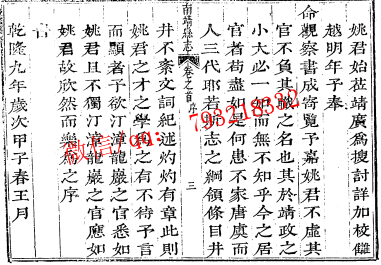 姚君始莅靖廣爲搜討詳加校讎
越明年予奉
命觀察書成寄覽予嘉姚君不虛其
官不負其職之名也其於靖政之
小大必一　而無不知乎今之居
官者苟盡如是何患不家唐虞而
人三代耶若　志之綱領條目井
南靖縣志
卷之首
三
井不紊文詞紀述灼灼有章此則
姚君之才之學識之有不待予言
而顯者予欲汀漳龍巖之官悉如
姚君且不獨汀漳龍巖之官應如
姚君故欣然而樂爲之序
旹
乾隆九年歲次甲子春王月
微信/qq: 793218332